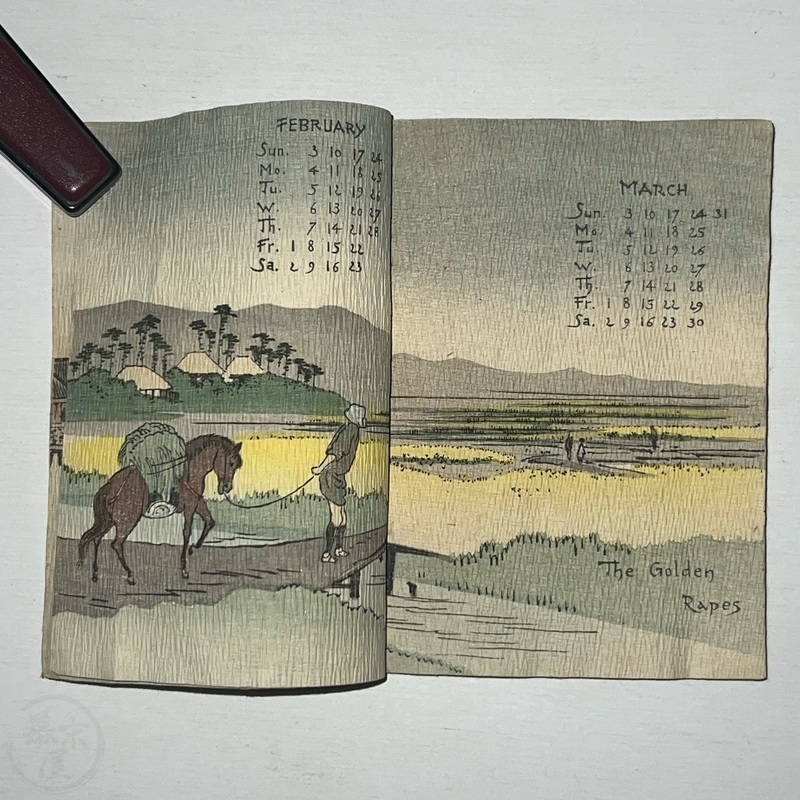 FEBRUARY
Sun. 3 10 17 24
Mo. 4 11 18 25
Tu. 5 12 19 26
W. 6 13 20 27
Th. 7 14 21 28
Fr. 1 8 15 22
Sa. 2 9 16 23
MARCH
Sun. 3 10 17 24 31
Mo. 4 11 18 25
Tu. 5 12 19 26
W. 6 13 20 27
Th. 7 14 21 28
Fr. 1 8 15 22 29
Sa. 2 9 16 23 30
The Golden
Rapes